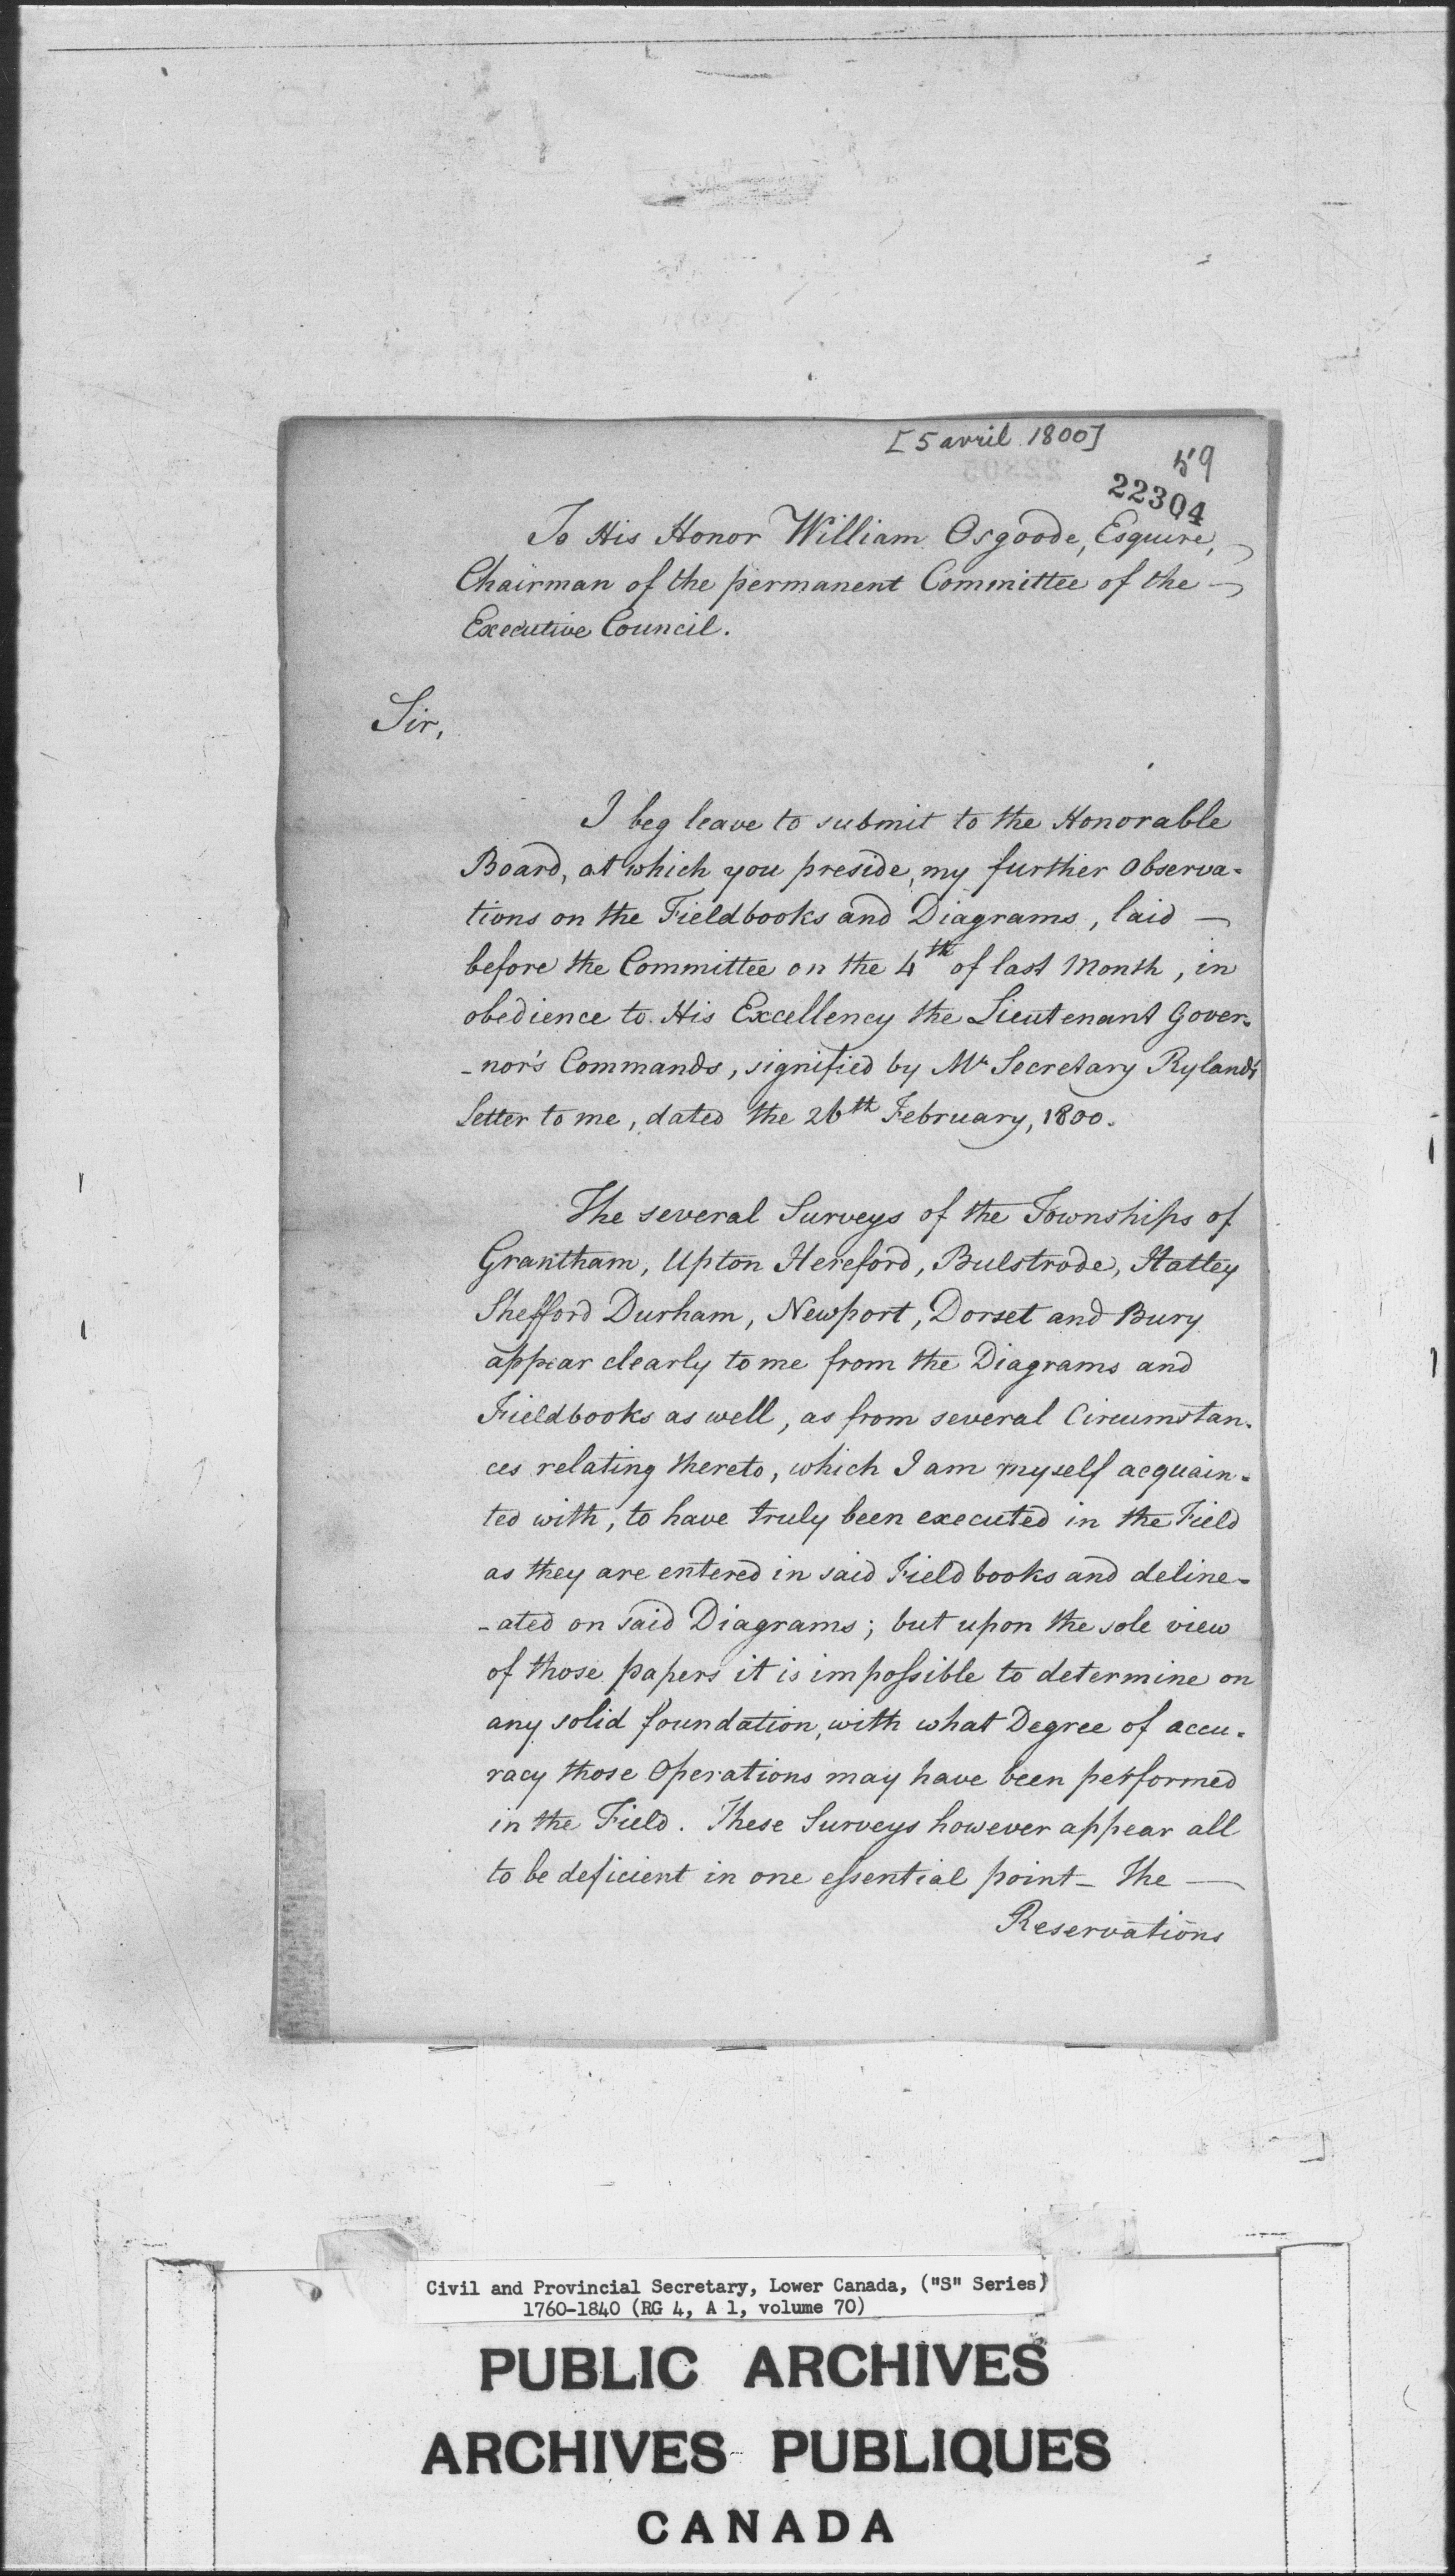 [5 avril 1800]
59
22304
To His Honor William Osgoode, Esquire,
Chairman of the permanent Committee of the
Executive Council.
Sir,
I beg leave to submit to the Honorable
Board, at which you preside, my further Observa-
tions on the Fieldbooks and Diagrams, laid —
before the Committee on the 4th of last Month, in
obedience to His Excellency the Lieutenant Gover-
-nor's Commands, signified by Mr Secretary Ryland's
Letter to me, dated the 26th February, 1800.
The several Surveys of the Townships of
Grantham, Upton Hereford, Bulstrode, Hatley
Shefford Durham, Newport, Dorset and Bury
appear clearly to me from the Diagrams and
Fieldbooks as well, as from several Circumstan-
ces relating thereto, which I am myself acquain-
ted with, to have truly been executed in the Field
as they are entered in said Fieldbooks and deline-
-ated on said Diagrams; but upon the sole view
of those papers it is impossible to determine on
any solid foundation, with what Degree of accu-
racy those Operations may have been performed
in the Field. These Surveys however appear all
to be deficient in one essential point - The —
Reservations
Civil and Provincial Secretary, Lower Canada, ("S" Series)
1760-1840 (RG 4, A 1, volume 70)
PUBLIC ARCHIVES
ARCHIVES PUBLIQUES
CANADA